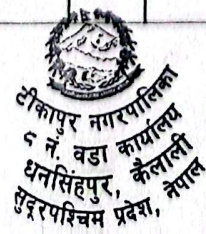 टीकापुर नगरपालिका
८ नं. वडा कार्यालय
धनसिंहपुर, कैलाली
सुदूरपश्चिम प्रदेश, नेपाल